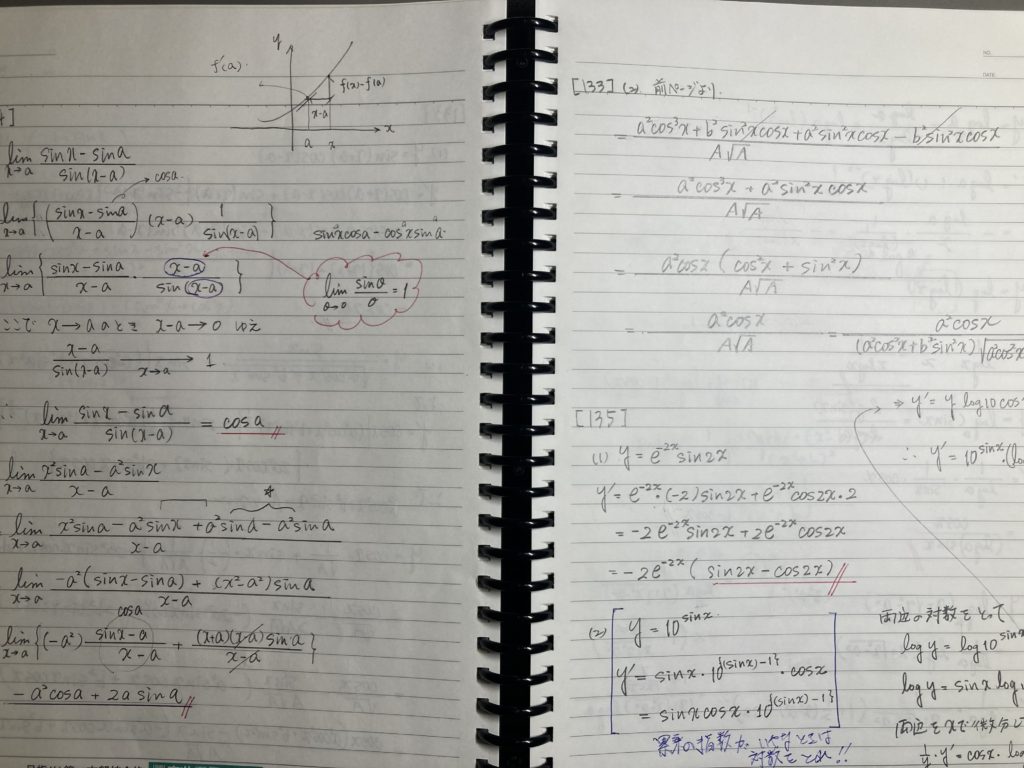 y
f'(a).
f(x)-f(a)
x-a
a x x
4]
lim x→a (sinx - sina)/(sin(x-a))
cosa
lim x→a { ((sinx - sina)/(x-a)) (x-a) 1/(sin(x-a)) }
lim x→a { (sinx - sina)/(x-a) · (x-a)/(sin(x-a)) }
lim θ→0 sinθ/θ = 1
ここで x→aのとき x-a→0 ゆえ
(x-a)/(sin(x-a)) → x→a 1
∴ lim x→a (sinx - sina)/(sin(x-a)) = cosa
lim x→a (x²sina - a²sinx)/(x-a)
lim x→a (x²sina - a²sinx + a²sina - a²sina)/(x-a)
lim x→a (-a²(sinx-sina) + (x²-a²)sina)/(x-a)
cosa
lim x→a { (-a²) (sinx-a)/(x-a) + ((x+a)(x-a)sina)/(x-a) }
- a²cosa + 2a sina
NO.
DATE
[133] (2) 前ページより.
= (a²cos³x + b²sin²xcosx + a²sin²xcosx - b²sin²xcosx)/(A√A)
= (a²cos³x + a²sin²xcosx)/(A√A)
= (a²cosx (cos²x + sin²x))/(A√A)
= (a²cosx)/(A√A) = (a²cosx)/((a²cos²x+b²sin²x)√a²cos²x
[135]
⇒ y' = y log10 cosx
(1) y = e^{-2x} sin2x
∴ y' = 10^{sinx}·(lo
y' = e^{-2x}·(-2)sin2x + e^{-2x} cos2x·2
= -2e^{-2x}sin2x + 2e^{-2x} cos2x
= -2e^{-2x} (sin2x - cos2x)
(2) y = 10^{sinx}
y' = sinx·10^{{(sinx)-1}}·cosx
= sinxcosx·10^{{(sinx)-1}}
累乗の指数が
対数をとれ!!
両辺の対数をとって
log y = log10^{sinx}
log y = sinx log 1
両辺をxで微分して
1/y · y' = cosx · lo